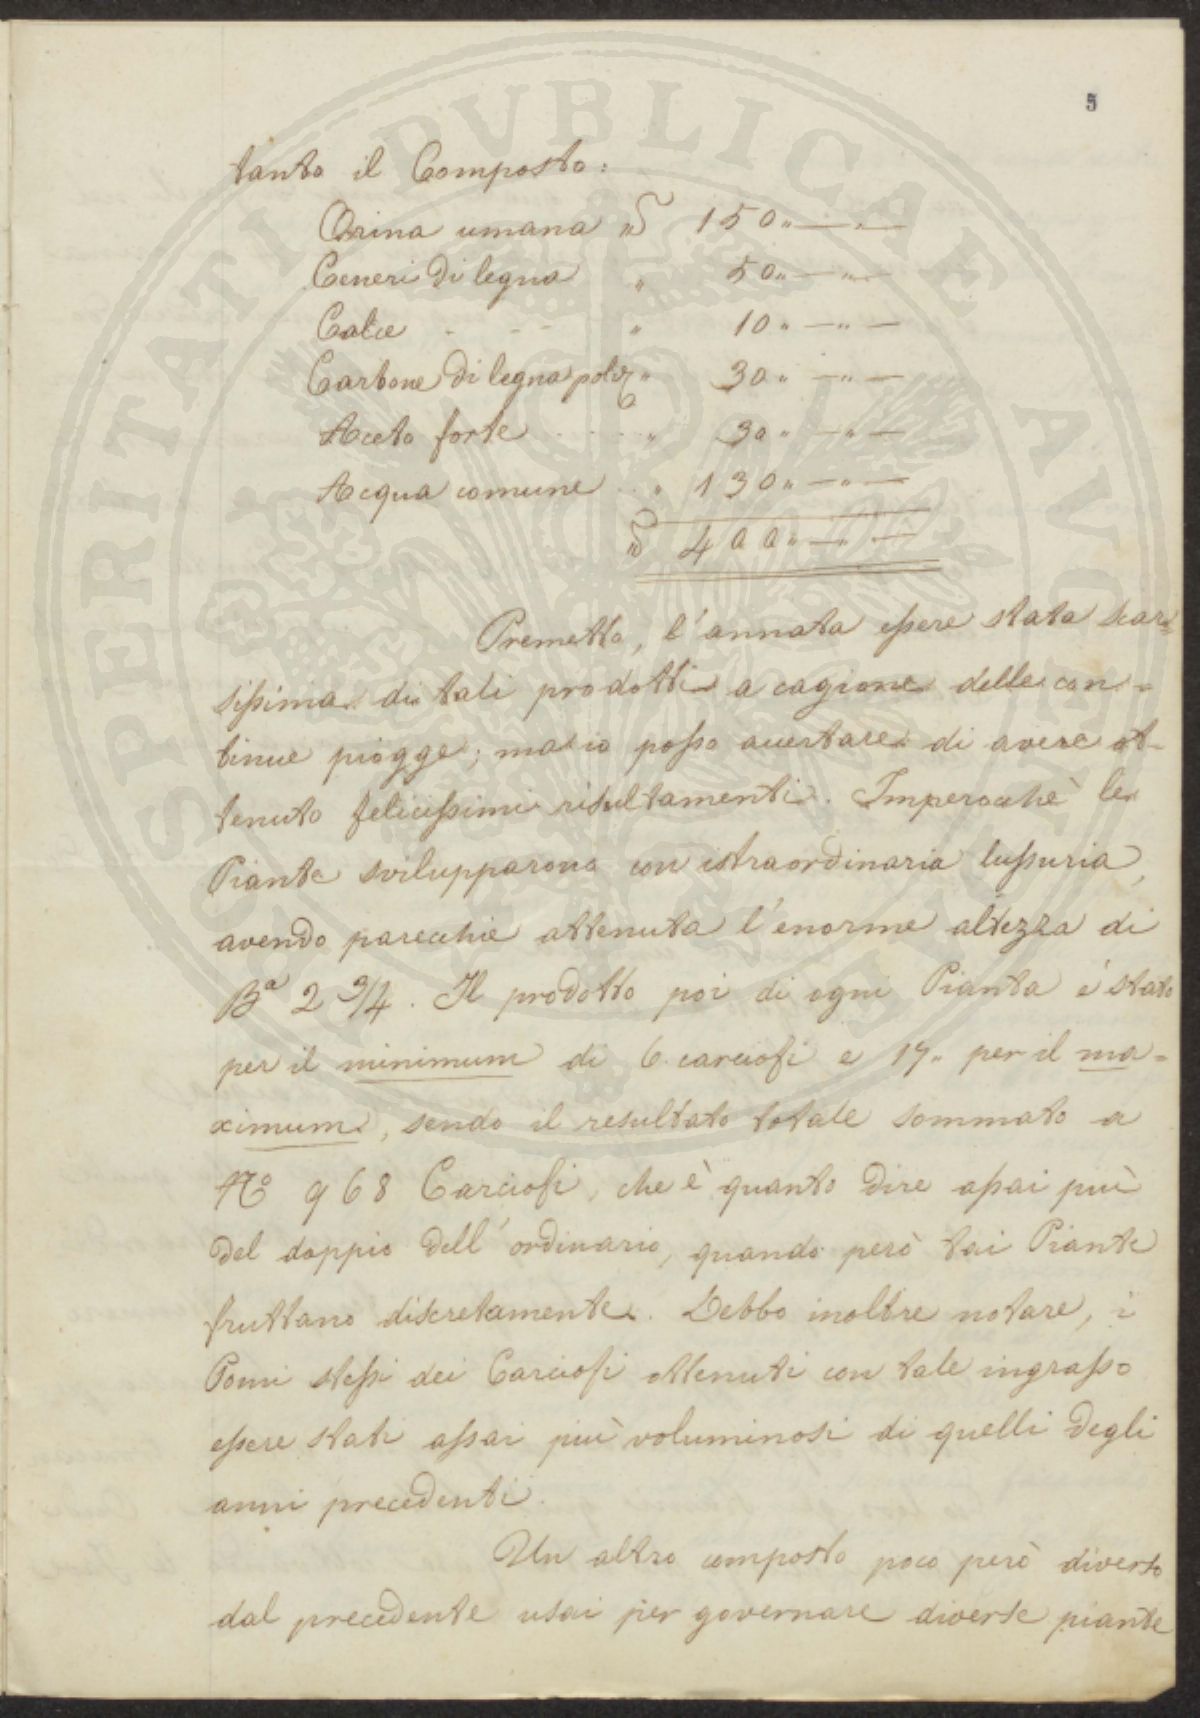 5
tanto il Composto:
Orina umana ℔ 150 " — " —
Ceneri di legna " 50 " — " —
Calce - - - " 10 " — " —
Carbone di legna polv " 30 " — " —
Aceto forte . . . . " 30 " — " —
Acqua comune . . " 130 " — " —
℔ 400 " — " —
Premetto, l'annata essere stata scar=
sissima di tali prodotti a cagione delle con-
tinue piogge; ma io posso accertare di avere ot-
tenuto felicissimi risultamenti. Imperocchè le
Piante svilupparono con istraordinaria lussuria,
avendo parecchie ottenuta l'enorme altezza di
Ba 2 3/4. Il prodotto poi di ogni Pianta è stato
per il minimum di 6. carciofi e 19" per il ma=
ximum, sendo il resultato totale sommato a
No 968 Carciofi, che è quanto dire assai più
del doppio dell'ordinario, quando però tai Piante
fruttano discretamente. Debbo inoltre notare, i
Pomi stessi dei Carciofi ottenuti con tale ingrasso
essere stati assai più voluminosi di quelli degli
anni precedenti.
Un altro composto poco però diverso
dal precedente usai per governare diverse piante
PROSPERITATI PVBLICAE AVGENDAE